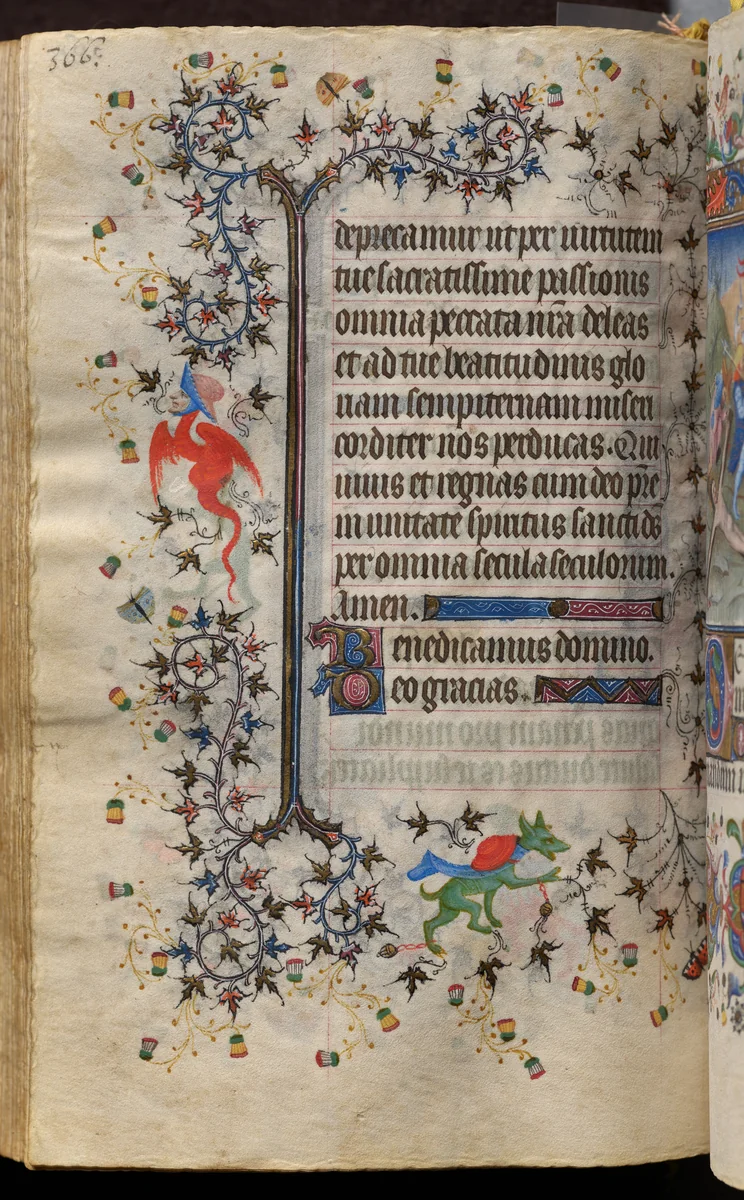 366:
deprecamur ut per uirtutem
tue sacratissime passionis
omnia peccata nr̃a deleas
et ad tue beatitudinis glo
riam sempiternam miseri
corditer nos perducas. Qui
uiuis et regnas cum deo pr̃e
in unitate spiritus sancti ds̃
per omnia secula seculorum.
Amen.
Benedicamus domino.
Deo gracias.